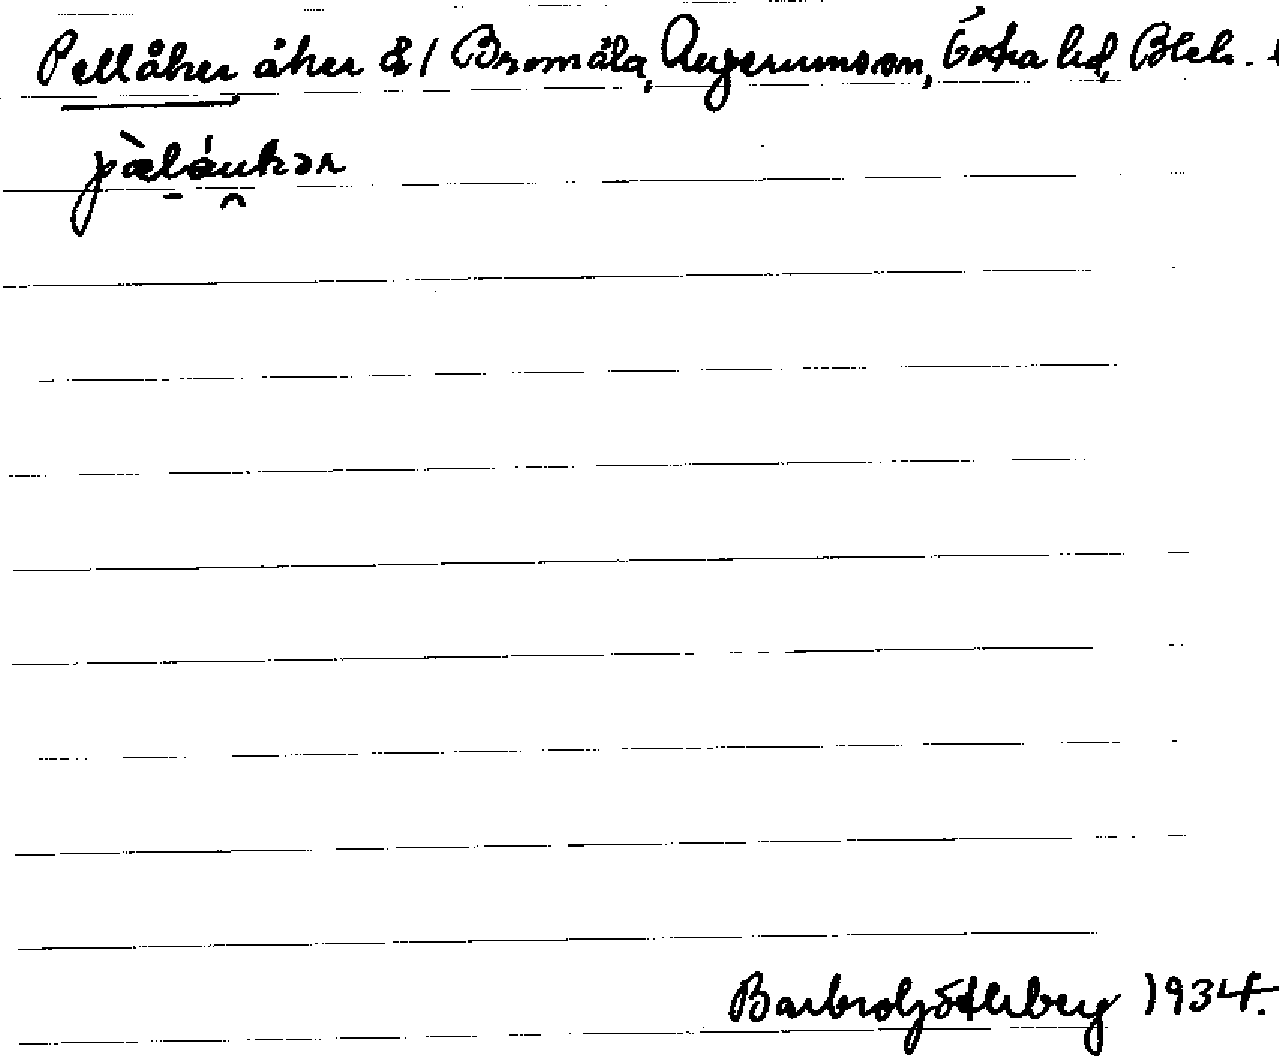 Pellåker åker å 1 Bromåla, Augerumssn, Östra hd, Blek.
pæ̀láukər
Barbro Götherberg 1934.